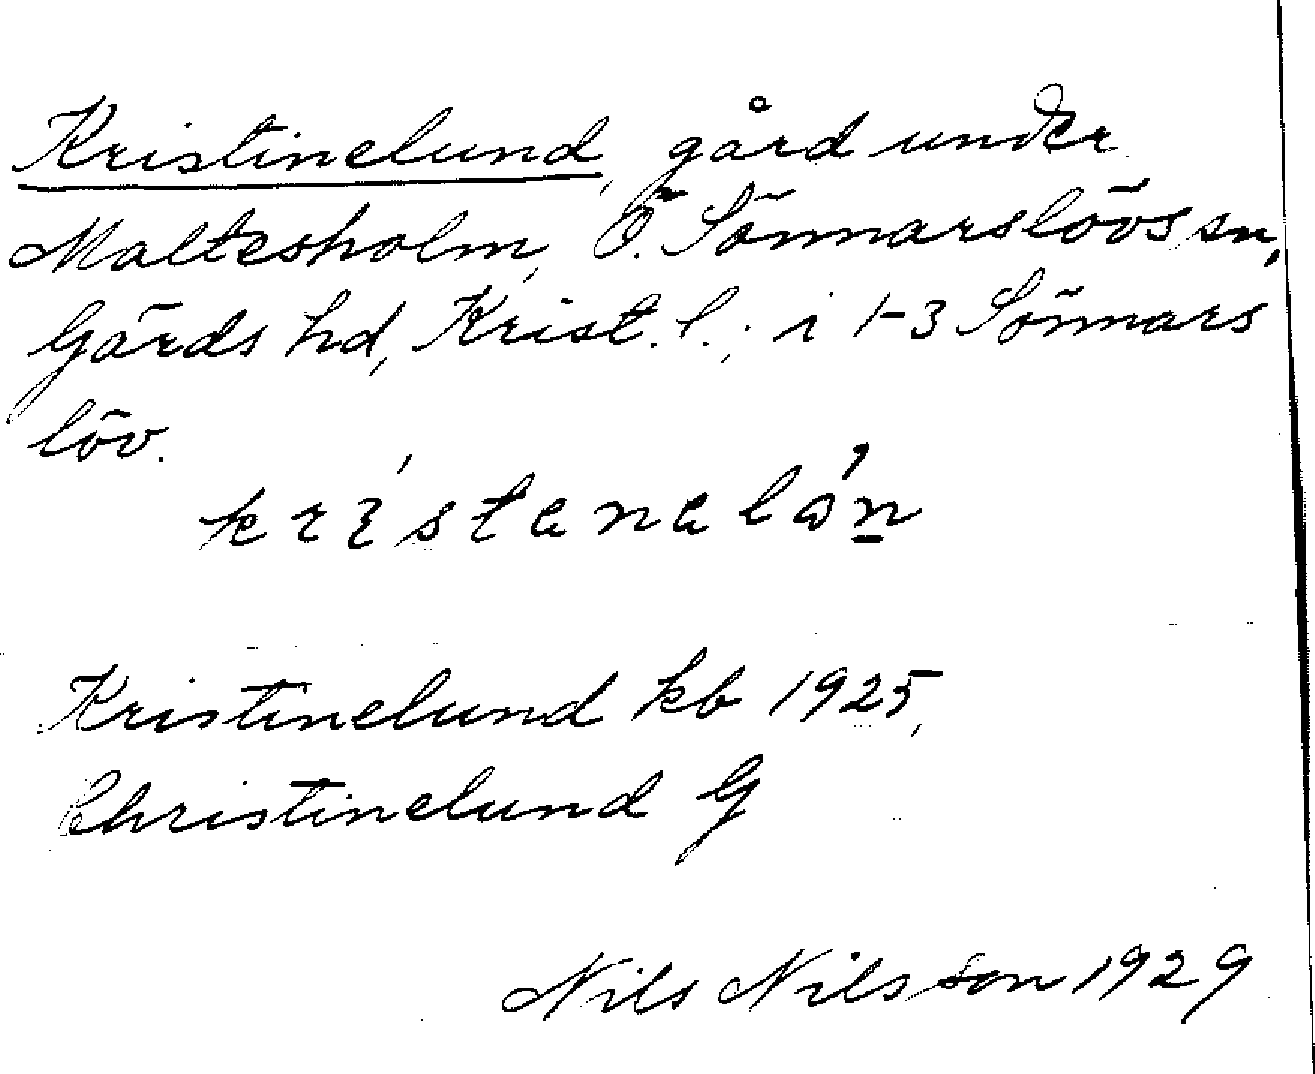 Kristinelund, gård under
Maltesholm, Ö. Sönnarslövs sn,
Gärds hd, Krist. l.; i 1-3 Sönnars
löv.
Kristinelund kb 1925,
Christinelund G
Nils Nilsson 1929